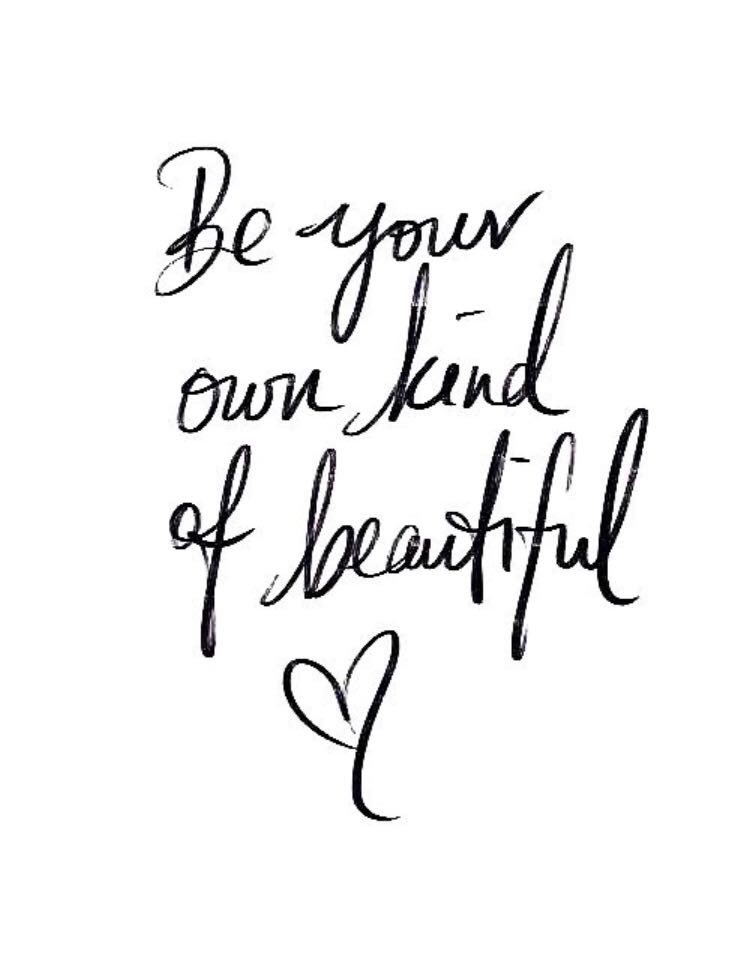 Be your
own kind
of beautiful